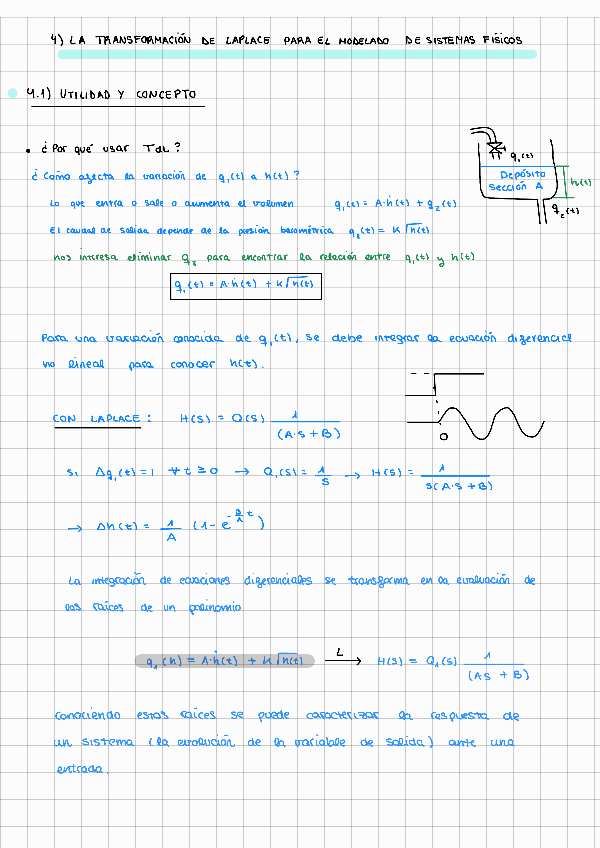 4) LA TRANSFORMACIÓN DE LAPLACE PARA EL MODELADO DE SISTEMAS FÍSICOS
4.1) UTILIDAD Y CONCEPTO
• ¿Por qué usar TdL?
¿Cómo afecta la variación de q₁(t) a h(t)?
Lo que entra o sale o aumenta el volumen q₁(t) = A·ḣ(t) + q₂(t)
El caudal de salida depende de la presión barométrica q₂(t) = K√h(t)
nos interesa eliminar q₂ para encontrar la relación entre q₁(t) y h(t)
q₁(t) = A·ḣ(t) + K√h(t)
q₁(t)
Depósito
sección A
h(t)
q₂(t)
Para una variación conocida de q₁(t), se debe integrar la ecuación diferencial
no lineal para conocer h(t).
CON LAPLACE: H(s) = Q(s) 1/(A·s + B)
0
si Δq₁(t) = 1 ∀ t ≥ 0 → Q₁(s) = 1/s → H(s) = 1/(s(A·s + B))
→ Δh(t) = 1/A (1 - e^(-B/A t))
La integración de ecuaciones diferenciales se transforma en la evaluación de
las raíces de un polinomio
q₁(h) = A·ḣ(t) + K√h(t) L → H(s) = Q₁(s) 1/(As + B)
Conociendo estas raíces se puede caracterizar la respuesta de
un sistema (la evolución de la variable de salida) ante una
entrada.